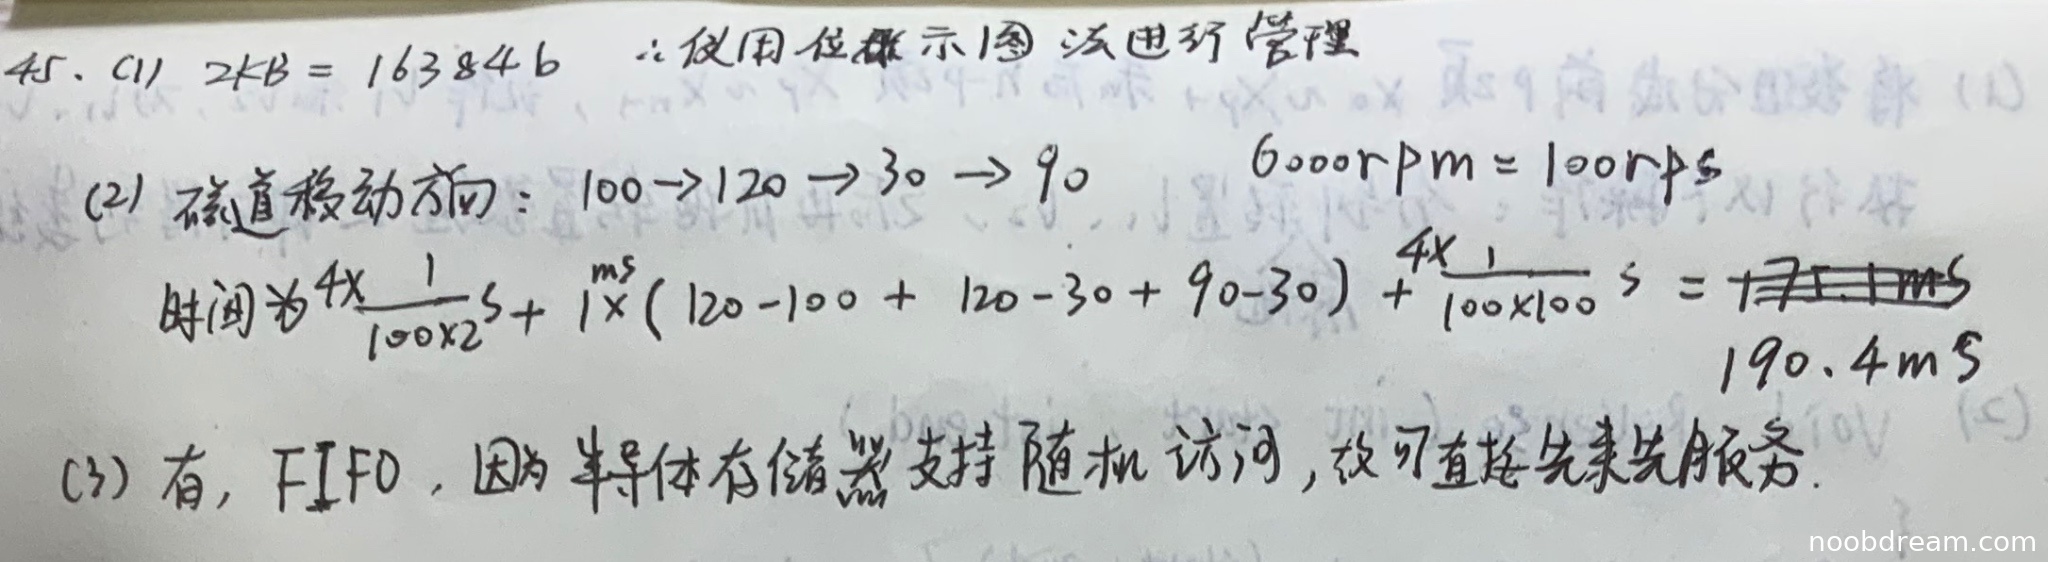 45. (1) 2KB = 16384b ∴使用位示图法进行管理
(2) 磁道移动方向: 100→120→30→90 6000rpm = 100rps
时间为 4× 1/(100×2) s + 1ms × (120-100 + 120-30 + 90-30) + 4× 1/(100×100) s =
190.4ms
(3) 有, FIFO, 因为半导体存储器支持随机访问, 故可直接先来先服务.
noobdream.com